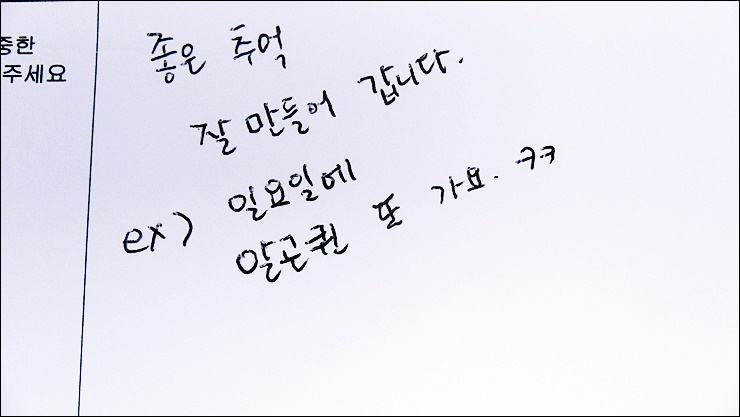 중한
주세요
좋은 추억
잘 만들어 갑니다.
ex) 일요일에
알곤퀸 또 가요. ㅋㅋ